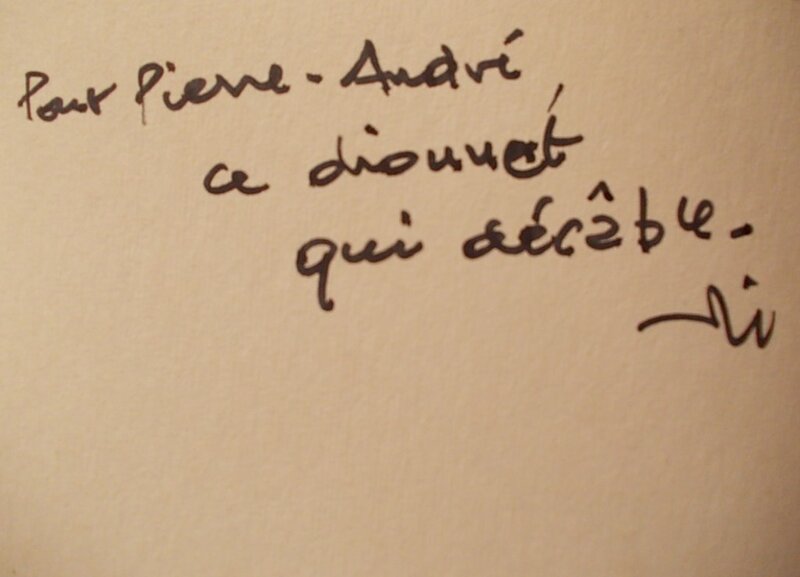 Pour Pierre-André,
ce dionnet
qui décâble.